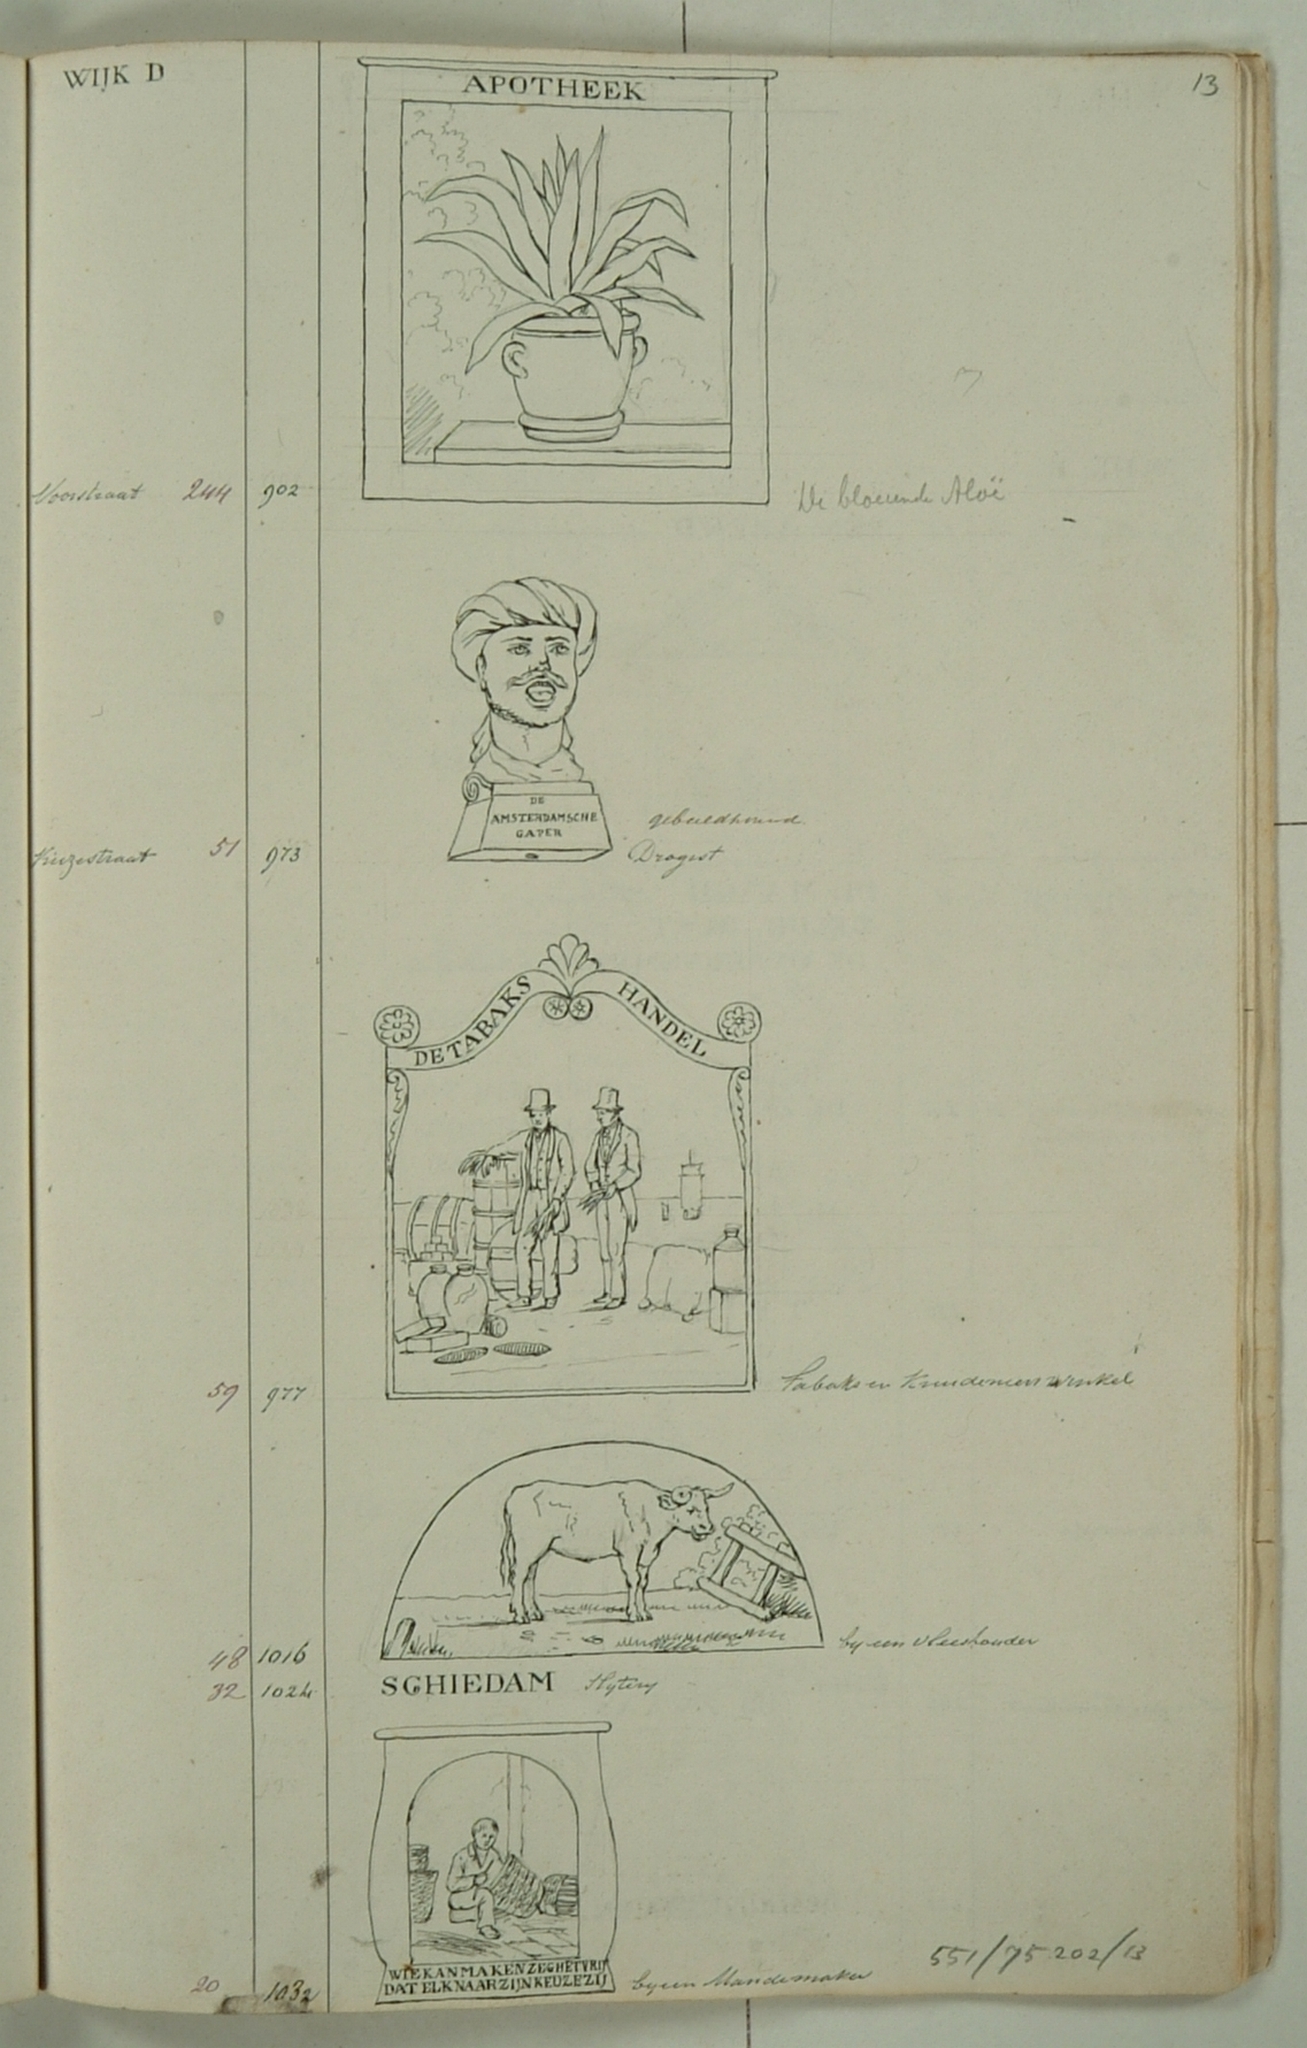 WIJK D
13
APOTHEEK
Voorstraat 244 902
De bloeiende Aloë
DE
AMSTERDAMSCHE
GAPER
gebeeldhouwd
51 973
Drogist
DE TABAKS HANDEL
59 977
Tabaks en Kruideniers winkel
48 1016
by een vleeshouder
32 1024
SCHIEDAM Slytery
WIE KAN MAKEN ZEG HET VRIJ
DAT ELK NAAR ZIJN KEUZE ZIJ
20 1032
by een Mandemaker
551/75 202/13